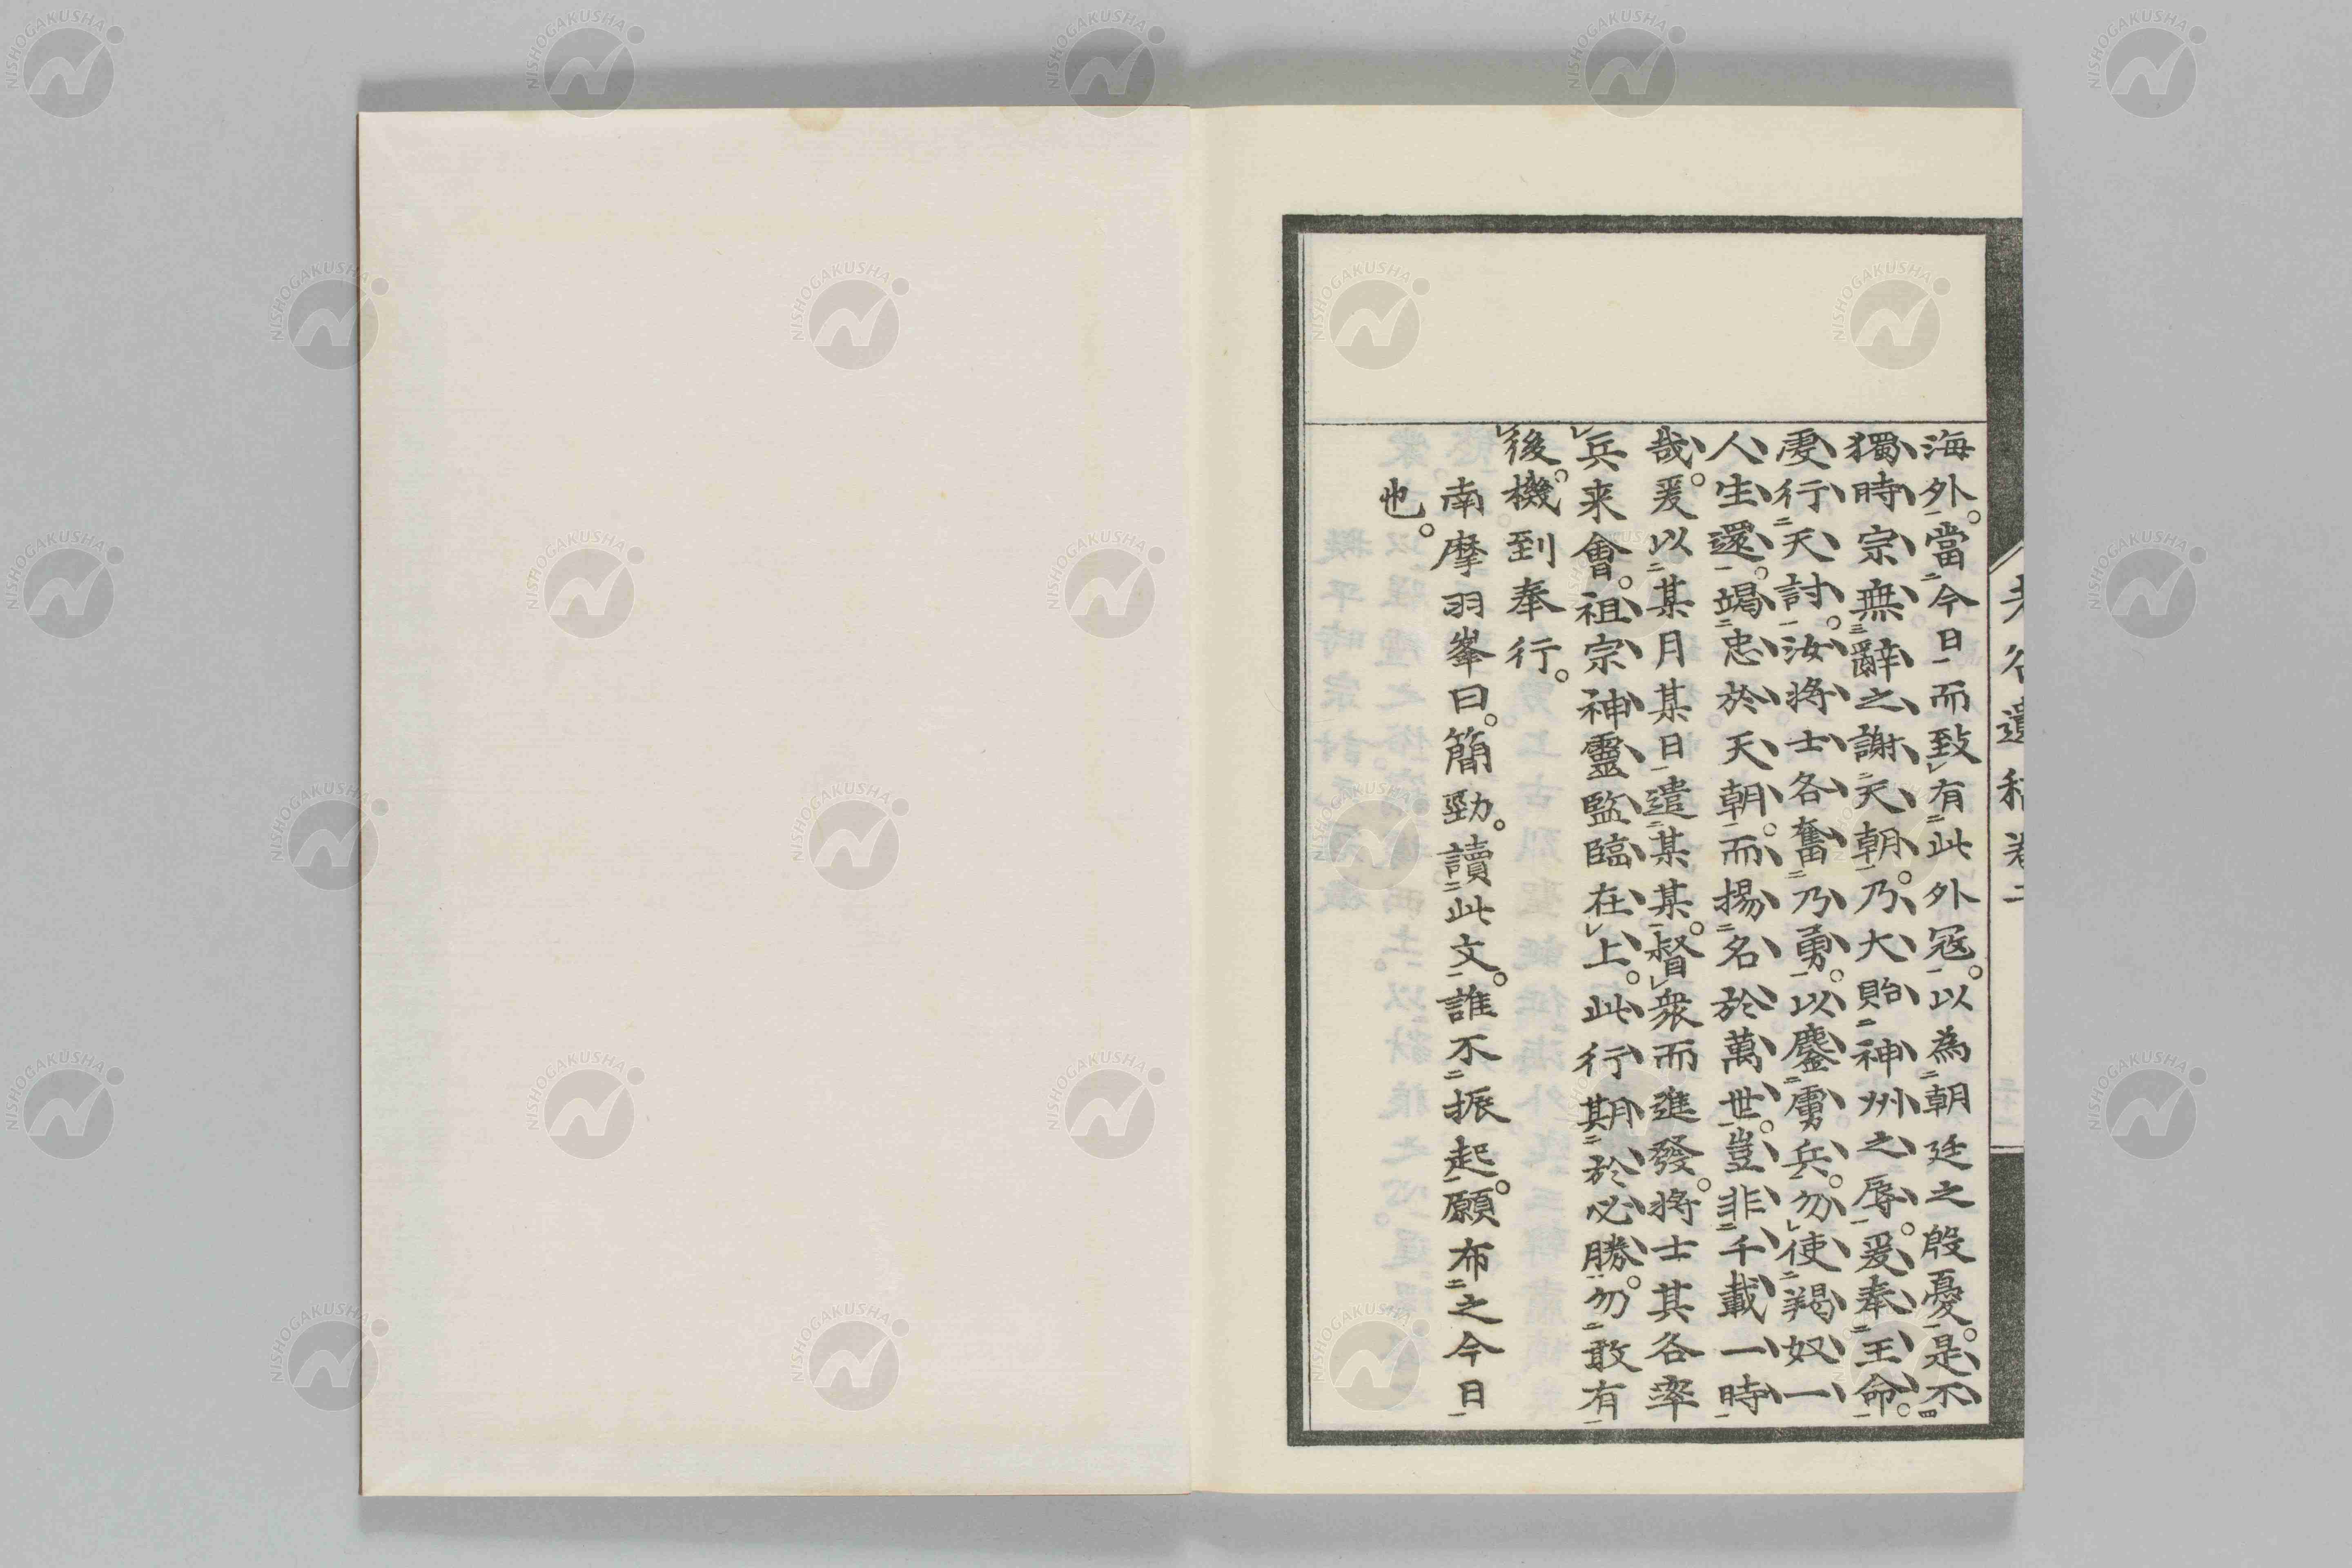 海外。當今日而致有此外冦。以為朝廷之殷憂。是不
獨時宗無辭之謝天朝。乃大貽神州之辱。爰奉王命。
虔行天討。汝將士各奮乃勇。以鏖虜兵。勿使羯奴一
人生還。竭忠於天朝。而揚名於萬世。豈非千載一時
哉。爰以某月某日遣某某。督衆而進發。將士其各率
兵来會。祖宗神靈監臨在上。此行期於必勝。勿敢有
後。機到奉行。
南摩羽峯曰。簡勁。讀此文。誰不振起。願布之今日
也。